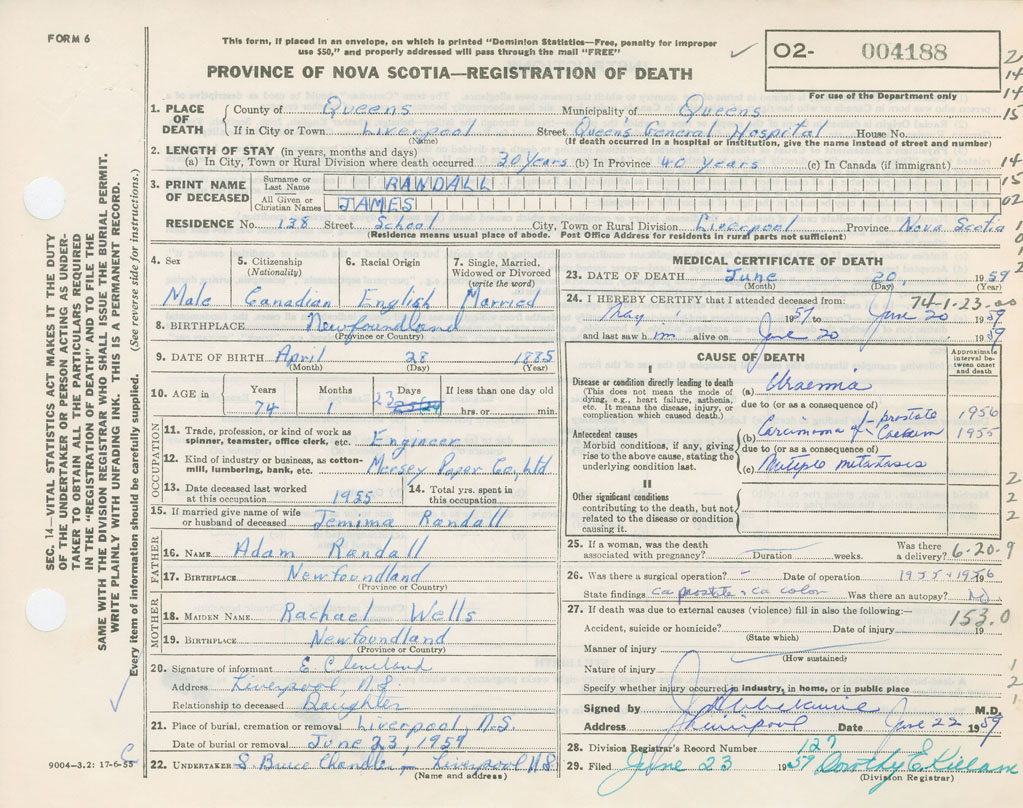 FORM 6
This form, if placed in an envelope, on which is printed "Dominion Statistics—Free, penalty for improper
use $50," and properly addressed will pass through the mail "FREE"
O2- 004188
For use of the Department only
PROVINCE OF NOVA SCOTIA—REGISTRATION OF DEATH
1. PLACE OF DEATH
County of Queens Municipality of Queens
If in City or Town Liverpool Street Queen's General Hospital House No.
(Name) (If death occurred in a hospital or institution, give the name instead of street and number)
2. LENGTH OF STAY (in years, months and days)
(a) In City, Town or Rural Division where death occurred 30 Years (b) In Province 40 years (c) In Canada (if immigrant)
3. PRINT NAME OF DECEASED
Surname or Last Name RANDALL
All Given or Christian Names JAMES
RESIDENCE No. 138 Street School City, Town or Rural Division Liverpool Province Nova Scotia
(Residence means usual place of abode. Post Office Address for residents in rural parts not sufficient)
4. Sex
Male
5. Citizenship (Nationality)
Canadian
6. Racial Origin
English
7. Single, Married, Widowed or Divorced (write the word)
Married
8. BIRTHPLACE Newfoundland
(Province or Country)
9. DATE OF BIRTH April 28 1885
(Month) (Day) (Year)
10. AGE in
Years Months Days If less than one day old
74 1 23 hrs. or min.
OCCUPATION
11. Trade, profession, or kind of work as
spinner, teamster, office clerk, etc. Engineer
12. Kind of industry or business, as cotton-
mill, lumbering, bank, etc. Mersey Paper Co, Ltd
13. Date deceased last worked
at this occupation 1955
14. Total yrs. spent in
this occupation
15. If married give name of wife
or husband of deceased Jemima Randall
FATHER
16. NAME Adam Randall
17. BIRTHPLACE Newfoundland
(Province or Country)
MOTHER
18. MAIDEN NAME Rachael Wells
19. BIRTHPLACE Newfoundland
(Province or Country)
20. Signature of informant E Cleveland
Address Liverpool, N.S.
Relationship to deceased Daughter
21. Place of burial, cremation or removal Liverpool, N.S.
Date of burial or removal June 23, 1959
22. UNDERTAKER S. Bruce Chandler, Liverpool N.S.
(Name and address)
9004-3.2: 17-6-55
MEDICAL CERTIFICATE OF DEATH
23. DATE OF DEATH June 20, 1959
(Month) (Day) (Year)
74-1-23-00
24. I HEREBY CERTIFY that I attended deceased from:
May 1957 to June 20 1959
and last saw him alive on June 20 1959
CAUSE OF DEATH
Approximate interval between onset and death
I
Disease or condition directly leading to death
(This does not mean the mode of
dying, e.g., heart failure, asthenia,
etc. It means the disease, injury, or
complication which caused death.)
(a) Uraemia
due to (or as a consequence of)
Antecedent causes
Morbid conditions, if any, giving
rise to the above cause, stating the
underlying condition last.
(b) Carcinoma of prostate 1956
Caecum 1955
due to (or as a consequence of)
(c) Multiple metastasis
II
Other significant conditions
contributing to the death, but not
related to the disease or condition
causing it.
25. If a woman, was the death
associated with pregnancy? Duration weeks. Was there
a delivery?
6-20-9
26. Was there a surgical operation? Date of operation 1955 & 1956
State findings ca prostate & ca colon Was there an autopsy? No
27. If death was due to external causes (violence) fill in also the following:—
153.0
Accident, suicide or homicide? Date of injury 19
(State which)
Manner of injury
(How sustained)
Nature of injury
Specify whether injury occurred in industry, in home, or in public place
Signed by M.D.
Address Liverpool Date June 22 1959
28. Division Registrar's Record Number 127
29. Filed June 23 1959 Dorothy E. Killam
(Division Registrar)
SEC. 14—VITAL STATISTICS ACT MAKES IT THE DUTY
OF THE UNDERTAKER OR PERSON ACTING AS UNDER-
TAKER TO OBTAIN ALL THE PARTICULARS REQUIRED
IN THE "REGISTRATION OF DEATH" AND TO FILE THE
SAME WITH THE DIVISION REGISTRAR WHO SHALL ISSUE THE BURIAL PERMIT.
WRITE PLAINLY WITH UNFADING INK. THIS IS A PERMANENT RECORD.
Every item of information should be carefully supplied. (See reverse side for instructions.)
2
14
14
15
14
15
02
1
0
1
2
2
2
2
1
2
1